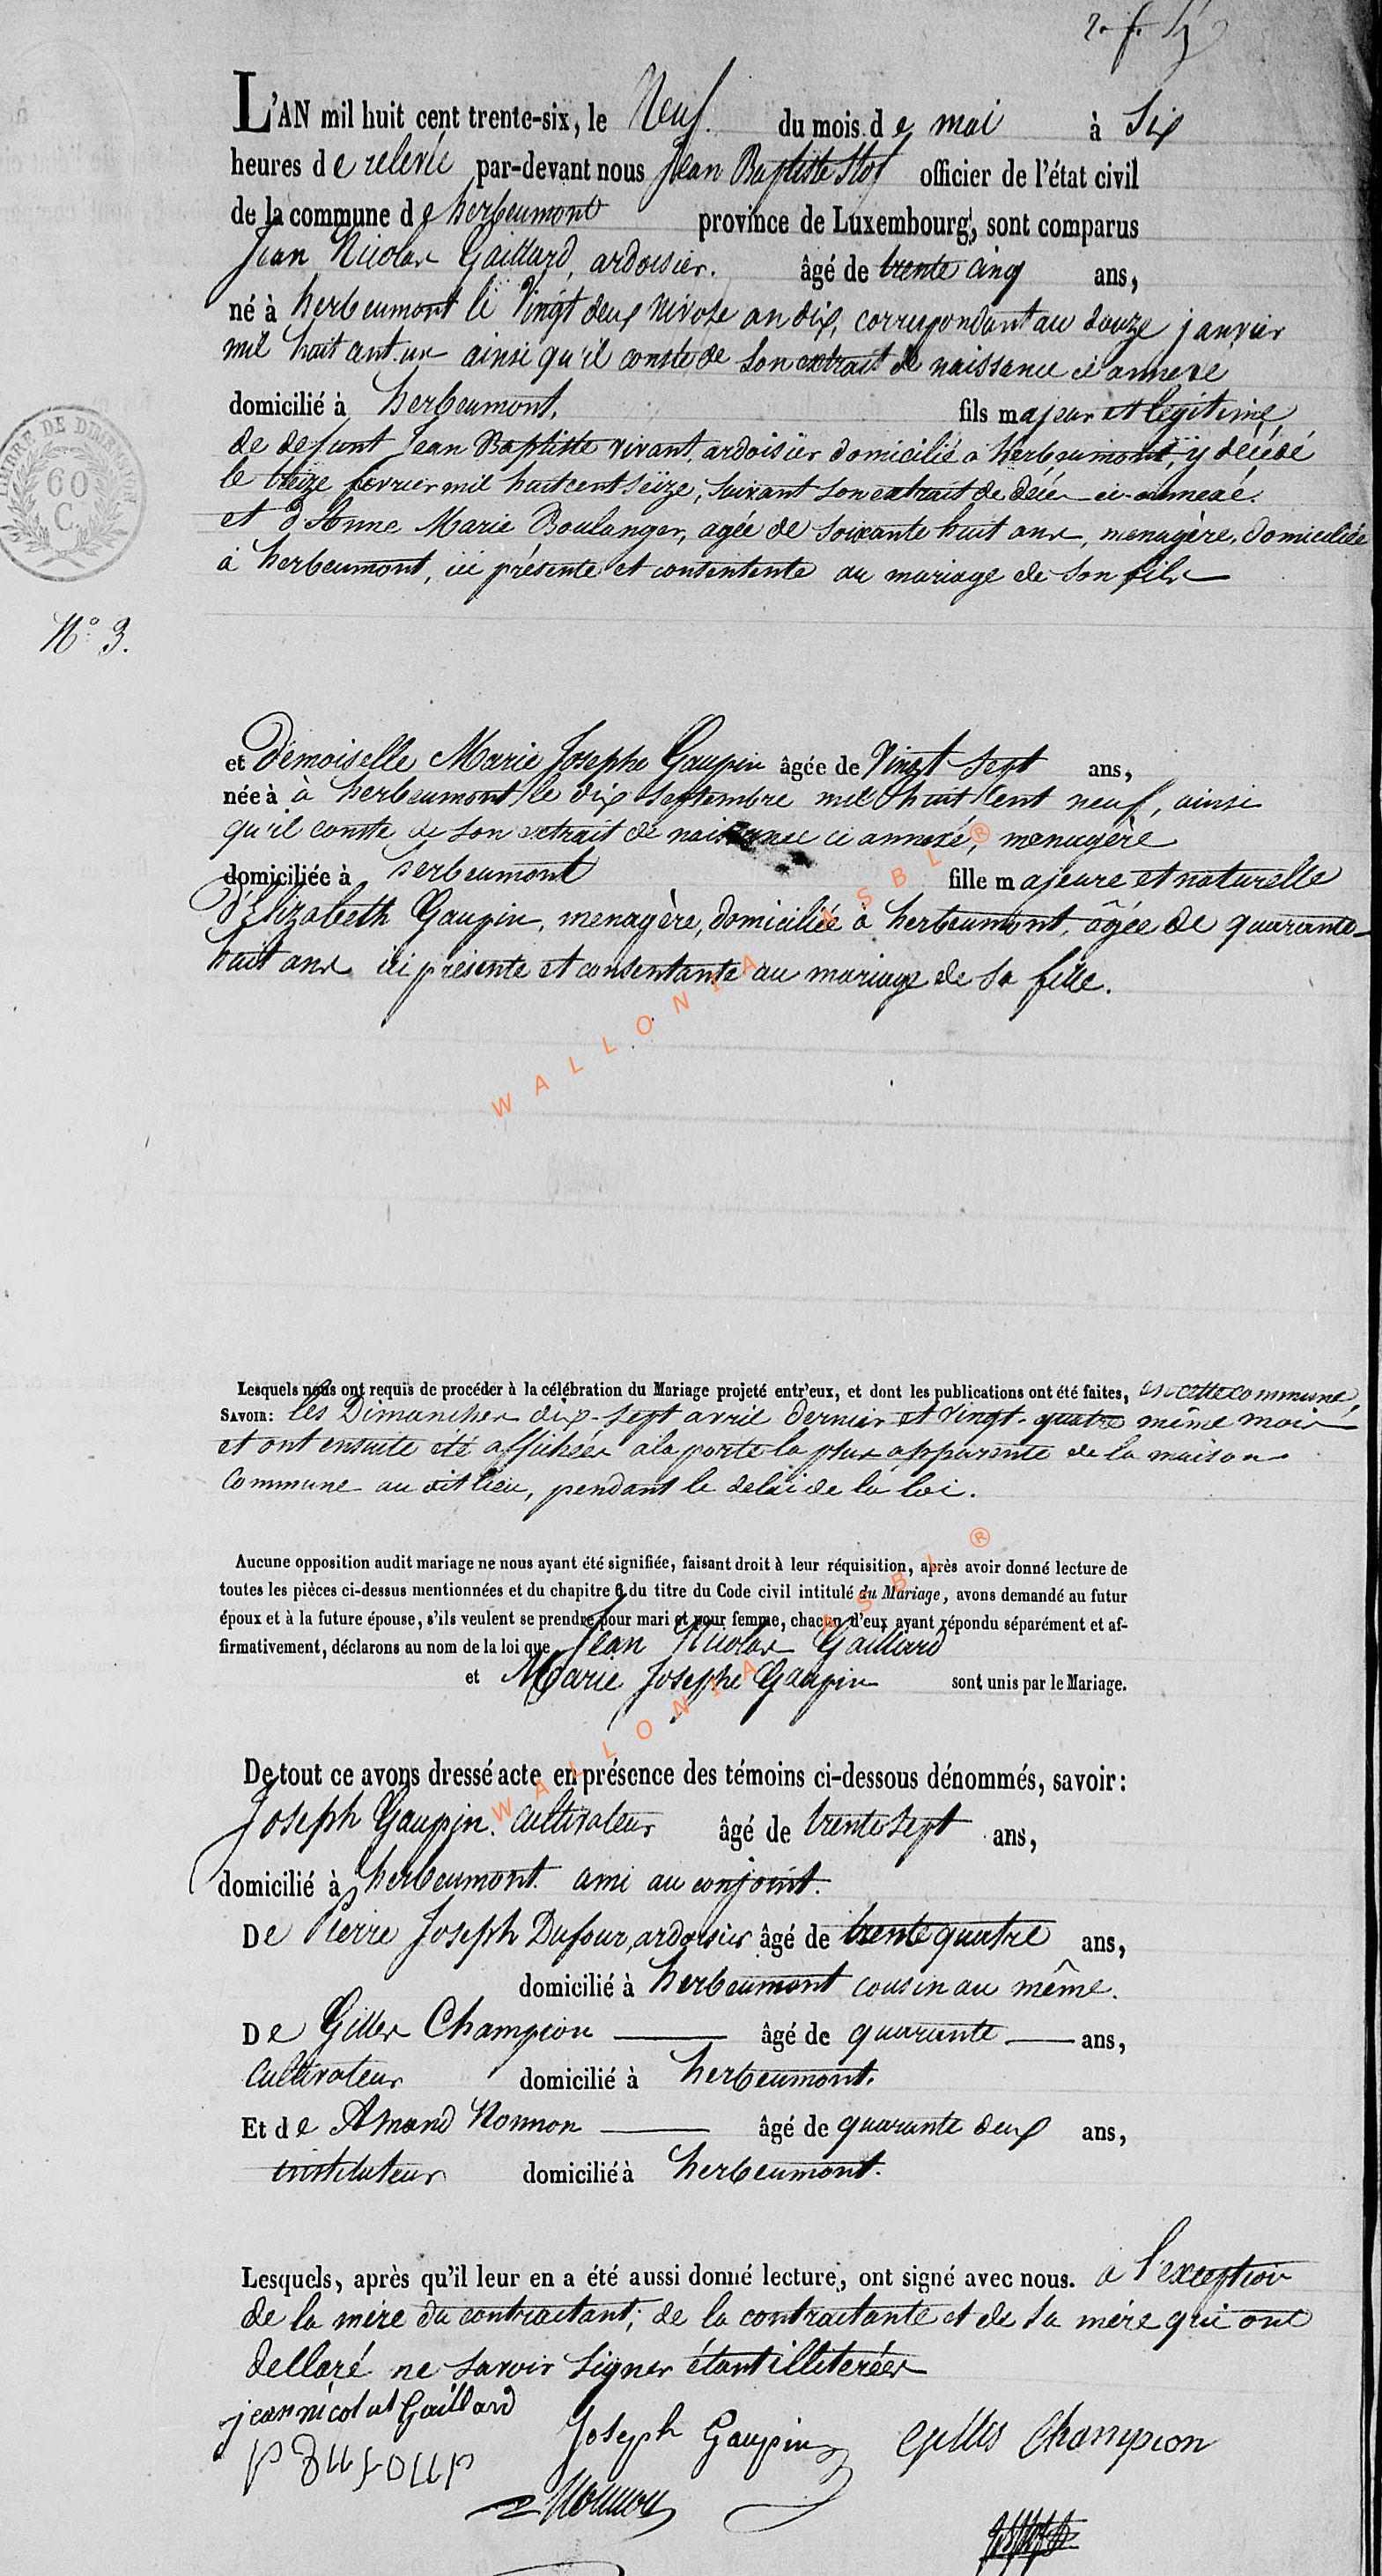 2. f.
L'AN mil huit cent trente-six, le Neuf. du mois de mai à Six
heures de relevée par-devant nous Jean Baptiste officier de l'état civil
de la commune de herbeumont province de Luxembourg, sont comparus
Jean Nicolas Gaillard, ardoisier. âgé de trente cinq ans,
né à herbeumont le Vingt deux Nivose an dix, correspondant au douze janvier
mil huit cent un ainsi qu'il conste de son extrait de naissance ci annexé
domicilié à herbeumont. fils majeur et légitime
de defunt Jean Baptiste vivant ardoisier domicilié à herbeumont, y décédé
le treize fevrier mil huit cent seize, suivant son extrait de décès ci-annexé.
et d'Anne Marie Boulanger, agée de soixante huit ans, menagère, domiciliée
à herbeumont, ici présente et consentente au mariage de son fils
TIMBRE DE DIMENSION
60
C.
N° 3.
et Demoiselle Marie Josephe Gaupin âgée de Vingt Sept ans,
née à à herbeumont le dix septembre mil huit Cent neuf, ainsi
qu'il conste de son extrait de naissance ci annexé, menagère
domiciliée à herbeumont fille majeure et naturelle
d'Elizabeth Gaupin, menagère, domiciliée à herbeumont, âgée de quarante-
huit ans ici présente et consentante au mariage de sa fille.
WALLONIA ASBL ®
Lesquels nous ont requis de procéder à la célébration du Mariage projeté entr'eux, et dont les publications ont été faites, en cette commune,
SAVOIR: les Dimanches dix-sept avril dernier et vingt-quatre même mois
et ont ensuite été affichées à la porte la plus apparente de la maison
Commune au dit lieu, pendant le delai de la loi.
Aucune opposition audit mariage ne nous ayant été signifiée, faisant droit à leur réquisition, après avoir donné lecture de
toutes les pièces ci-dessus mentionnées et du chapitre 6 du titre du Code civil intitulé du Mariage, avons demandé au futur
époux et à la future épouse, s'ils veulent se prendre pour mari et pour femme, chacun d'eux ayant répondu séparément et af-
firmativement, déclarons au nom de la loi que Jean Nicolas Gaillard
et Marie Josephe Gaupin sont unis par le Mariage.
WALLONIA ASBL ®
De tout ce avons dressé acte en présence des témoins ci-dessous dénommés, savoir:
Joseph Gaupin. cultivateur âgé de trente sept ans,
domicilié à herbeumont. ami au conjoint.
De Pierre Joseph Dufour, ardoisier âgé de trente quatre ans,
domicilié à herbeumont cousin au même.
De Gilles Champion âgé de quarante ans,
Cultivateur domicilié à herbeumont.
Et de Amand Nonnon âgé de quarante deux ans,
instituteur domicilié à herbeumont.
Lesquels, après qu'il leur en a été aussi donné lecture, ont signé avec nous. à l'exception
de la mère du contractant, de la contractante et de sa mère qui ont
dellaré ne savoir signer étant illiterées
jean nicolas Gaillard
Joseph Gaupin Gilles Champion
P J dufour
Nonnon